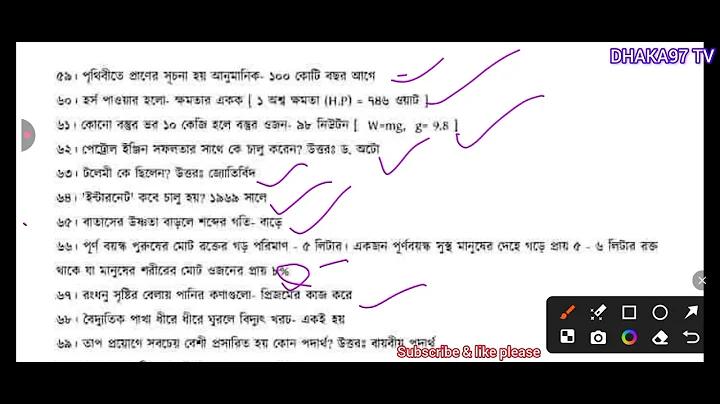 DHAKA97 TV
৫৯। পৃথিবীতে প্রাণের সূচনা হয় আনুমানিক- ১০০ কোটি বছর আগে
৬০। হর্স পাওয়ার হলো- ক্ষমতার একক [ ১ অশ্ব ক্ষমতা (H.P) = ৭৪৬ ওয়াট ]
৬১। কোনো বস্তুর ভর ১০ কেজি হলে বস্তুর ওজন- ৯৮ নিউটন [ W=mg, g= 9.8 ]
৬২। পেট্রোল ইঞ্জিন সফলতার সাথে কে চালু করেন? উত্তরঃ ড. অটো
৬৩। টলেমী কে ছিলেন? উত্তরঃ জ্যোতির্বিদ
৬৪। 'ইন্টারনেট' কবে চালু হয়? ১৯৬৯ সালে
৬৫। বাতাসের উষ্ণতা বাড়লে শব্দের গতি- বাড়ে
৬৬। পূর্ণ বয়স্ক পুরুষের মোট রক্তের গড় পরিমাণ - ৫ লিটার। একজন পূর্ণবয়স্ক সুস্থ মানুষের দেহে গড়ে প্রায় ৫ - ৬ লিটার রক্ত
থাকে যা মানুষের শরীরের মোট ওজনের প্রায় ৮%
৬৭। রংধনু সৃষ্টির বেলায় পানির কণাগুলো- প্রিজমের কাজ করে
৬৮। বৈদ্যুতিক পাখা ধীরে ধীরে ঘুরলে বিদ্যুৎ খরচ- একই হয়
৬৯। তাপ প্রয়োগে সবচেয়ে বেশী প্রসারিত হয় কোন পদার্থ? উত্তরঃ বায়বীয় পদার্থ
Subscribe & like please